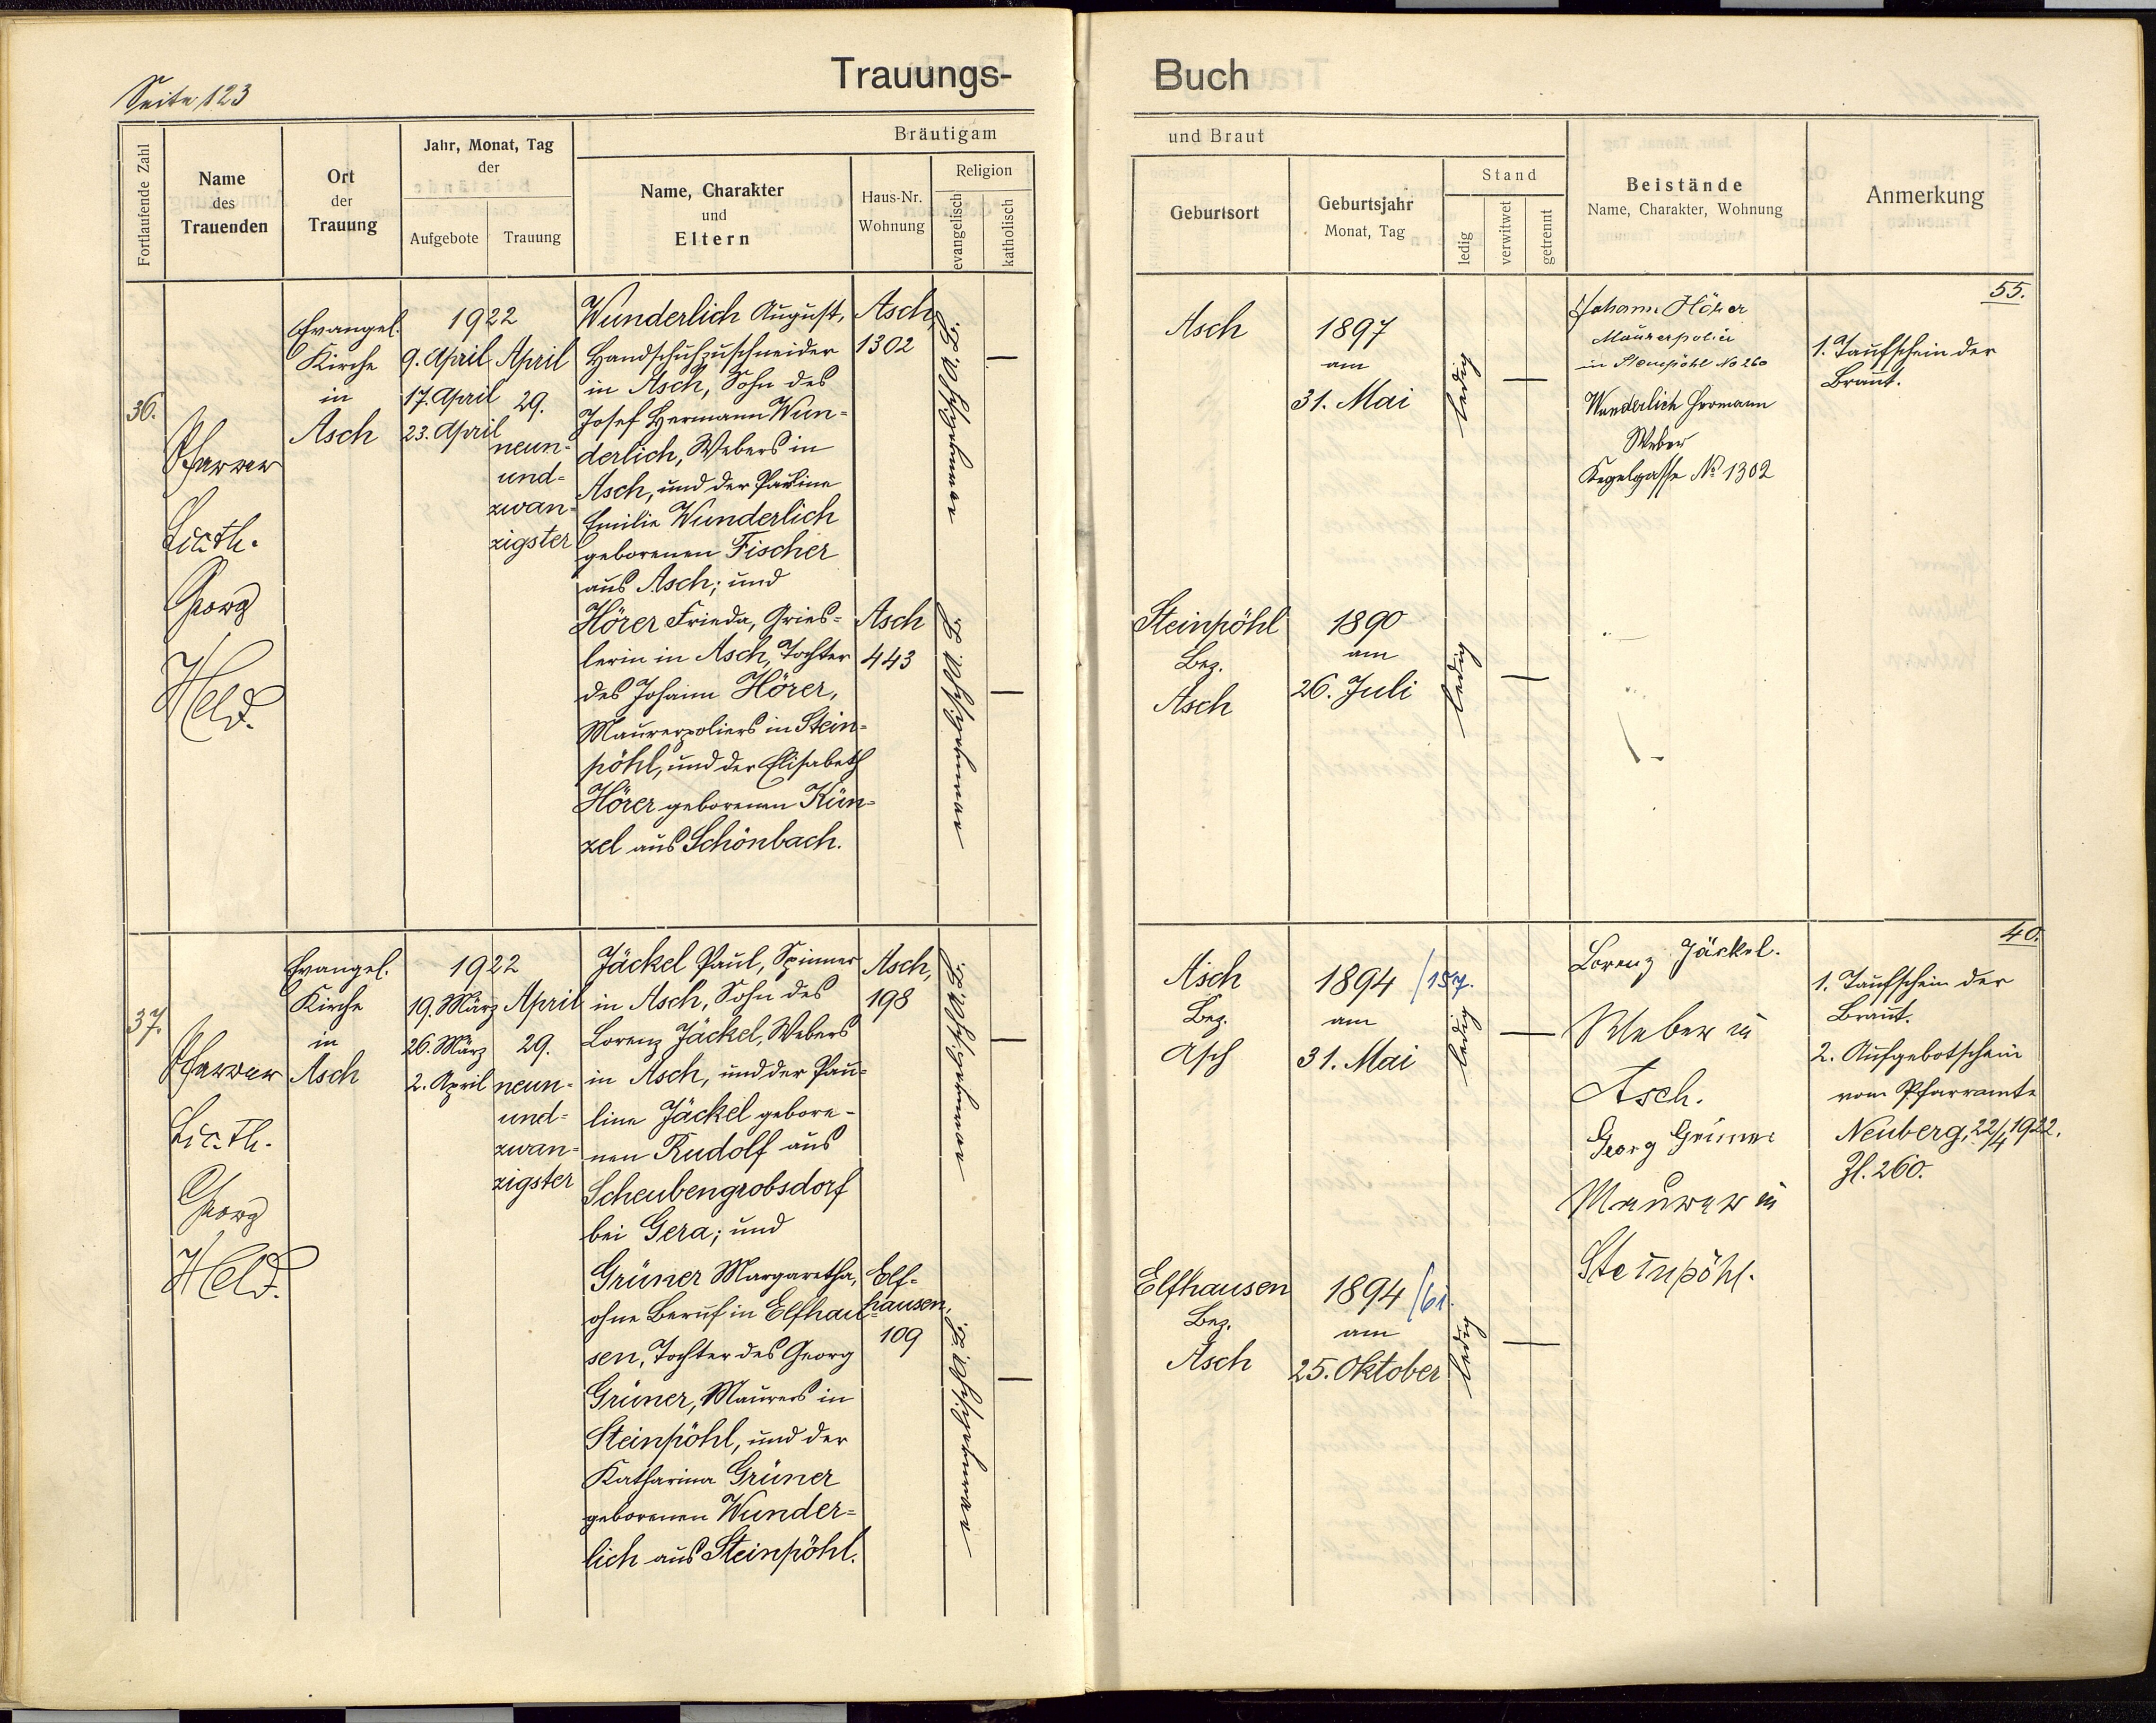 Seite 123
Trauungs-
Buch
Fortlaufende Zahl
Name
des
Trauenden
Ort
der
Trauung
Jahr, Monat, Tag
der
Aufgebote
Trauung
Bräutigam
Name, Charakter
und
Eltern
Haus-Nr.
Wohnung
Religion
evangelisch
katholisch
und Braut
Geburtsort
Geburtsjahr
Monat, Tag
Stand
ledig
verwitwet
getrennt
Beistände
Name, Charakter, Wohnung
Anmerkung
36.
Pfarrer
Lic. th.
Georg
Held.
Evangel.
Kirche
in
Asch
1922
9. April
17. April
23. April
April
29.
neun-
und-
zwan-
zigster
Wunderlich August,
Handschuhzuschneider
in Asch, Sohn des
Josef Hermann Wun-
derlich, Webers in
Asch, und der Pauline
Emilie Wunderlich
geborenen Fischer
aus Asch; und
Hörer Frieda, Gries-
lerin in Asch, Tochter
des Johann Hörer,
Maurerpoliers in Stein-
pöhl, und der Elisabeth
Hörer geborenen Kün-
zel aus Schönbach.
Asch,
1302
Asch
443
—
—
Asch
1897
am
31. Mai
ledig
—
Steinpöhl
Bez.
Asch
1890
am
26. Juli
ledig
—
Johann Hörer
Maurerpolier
in Steinpöhl No 260
Wunderlich Hermann
Weber
Kegelgasse No 1302
55.
1. Taufschein der
Braut.
37.
Pfarrer
Lic. Th.
Georg
Held.
Evangel.
Kirche
in
Asch
1922
19. März
26. März
2. April
April
29.
neun-
und-
zwan-
zigster
Jäckel Paul, Spinner
in Asch, Sohn des
Lorenz Jäckel, Webers
in Asch, und der Pau-
line Jäckel gebore-
nen Rudolf aus
Scheubengrobsdorf
bei Gera; und
Grüner Margaretha,
ohne Beruf in Elfhau-
sen, Tochter des Georg
Grüner, Maurers in
Steinpöhl, und der
Katharina Grüner
geborenen Wunder-
lich aus Steinpöhl.
Asch,
198
Elf-
hausen,
109
—
—
Asch
Bez.
Asch
1894 /157.
am
31. Mai
ledig
—
Elfhausen
Bez.
Asch
1894 /61.
am
25. Oktober
ledig
—
Lorenz Jäckel.
Weber in
Asch.
Georg Grüner
Maurer in
Steinpöhl.
40.
1. Taufschein der
Braut.
2. Aufgebotschein
vom Pfarramte
Neuberg, 22/4 1922,
Zl. 260.